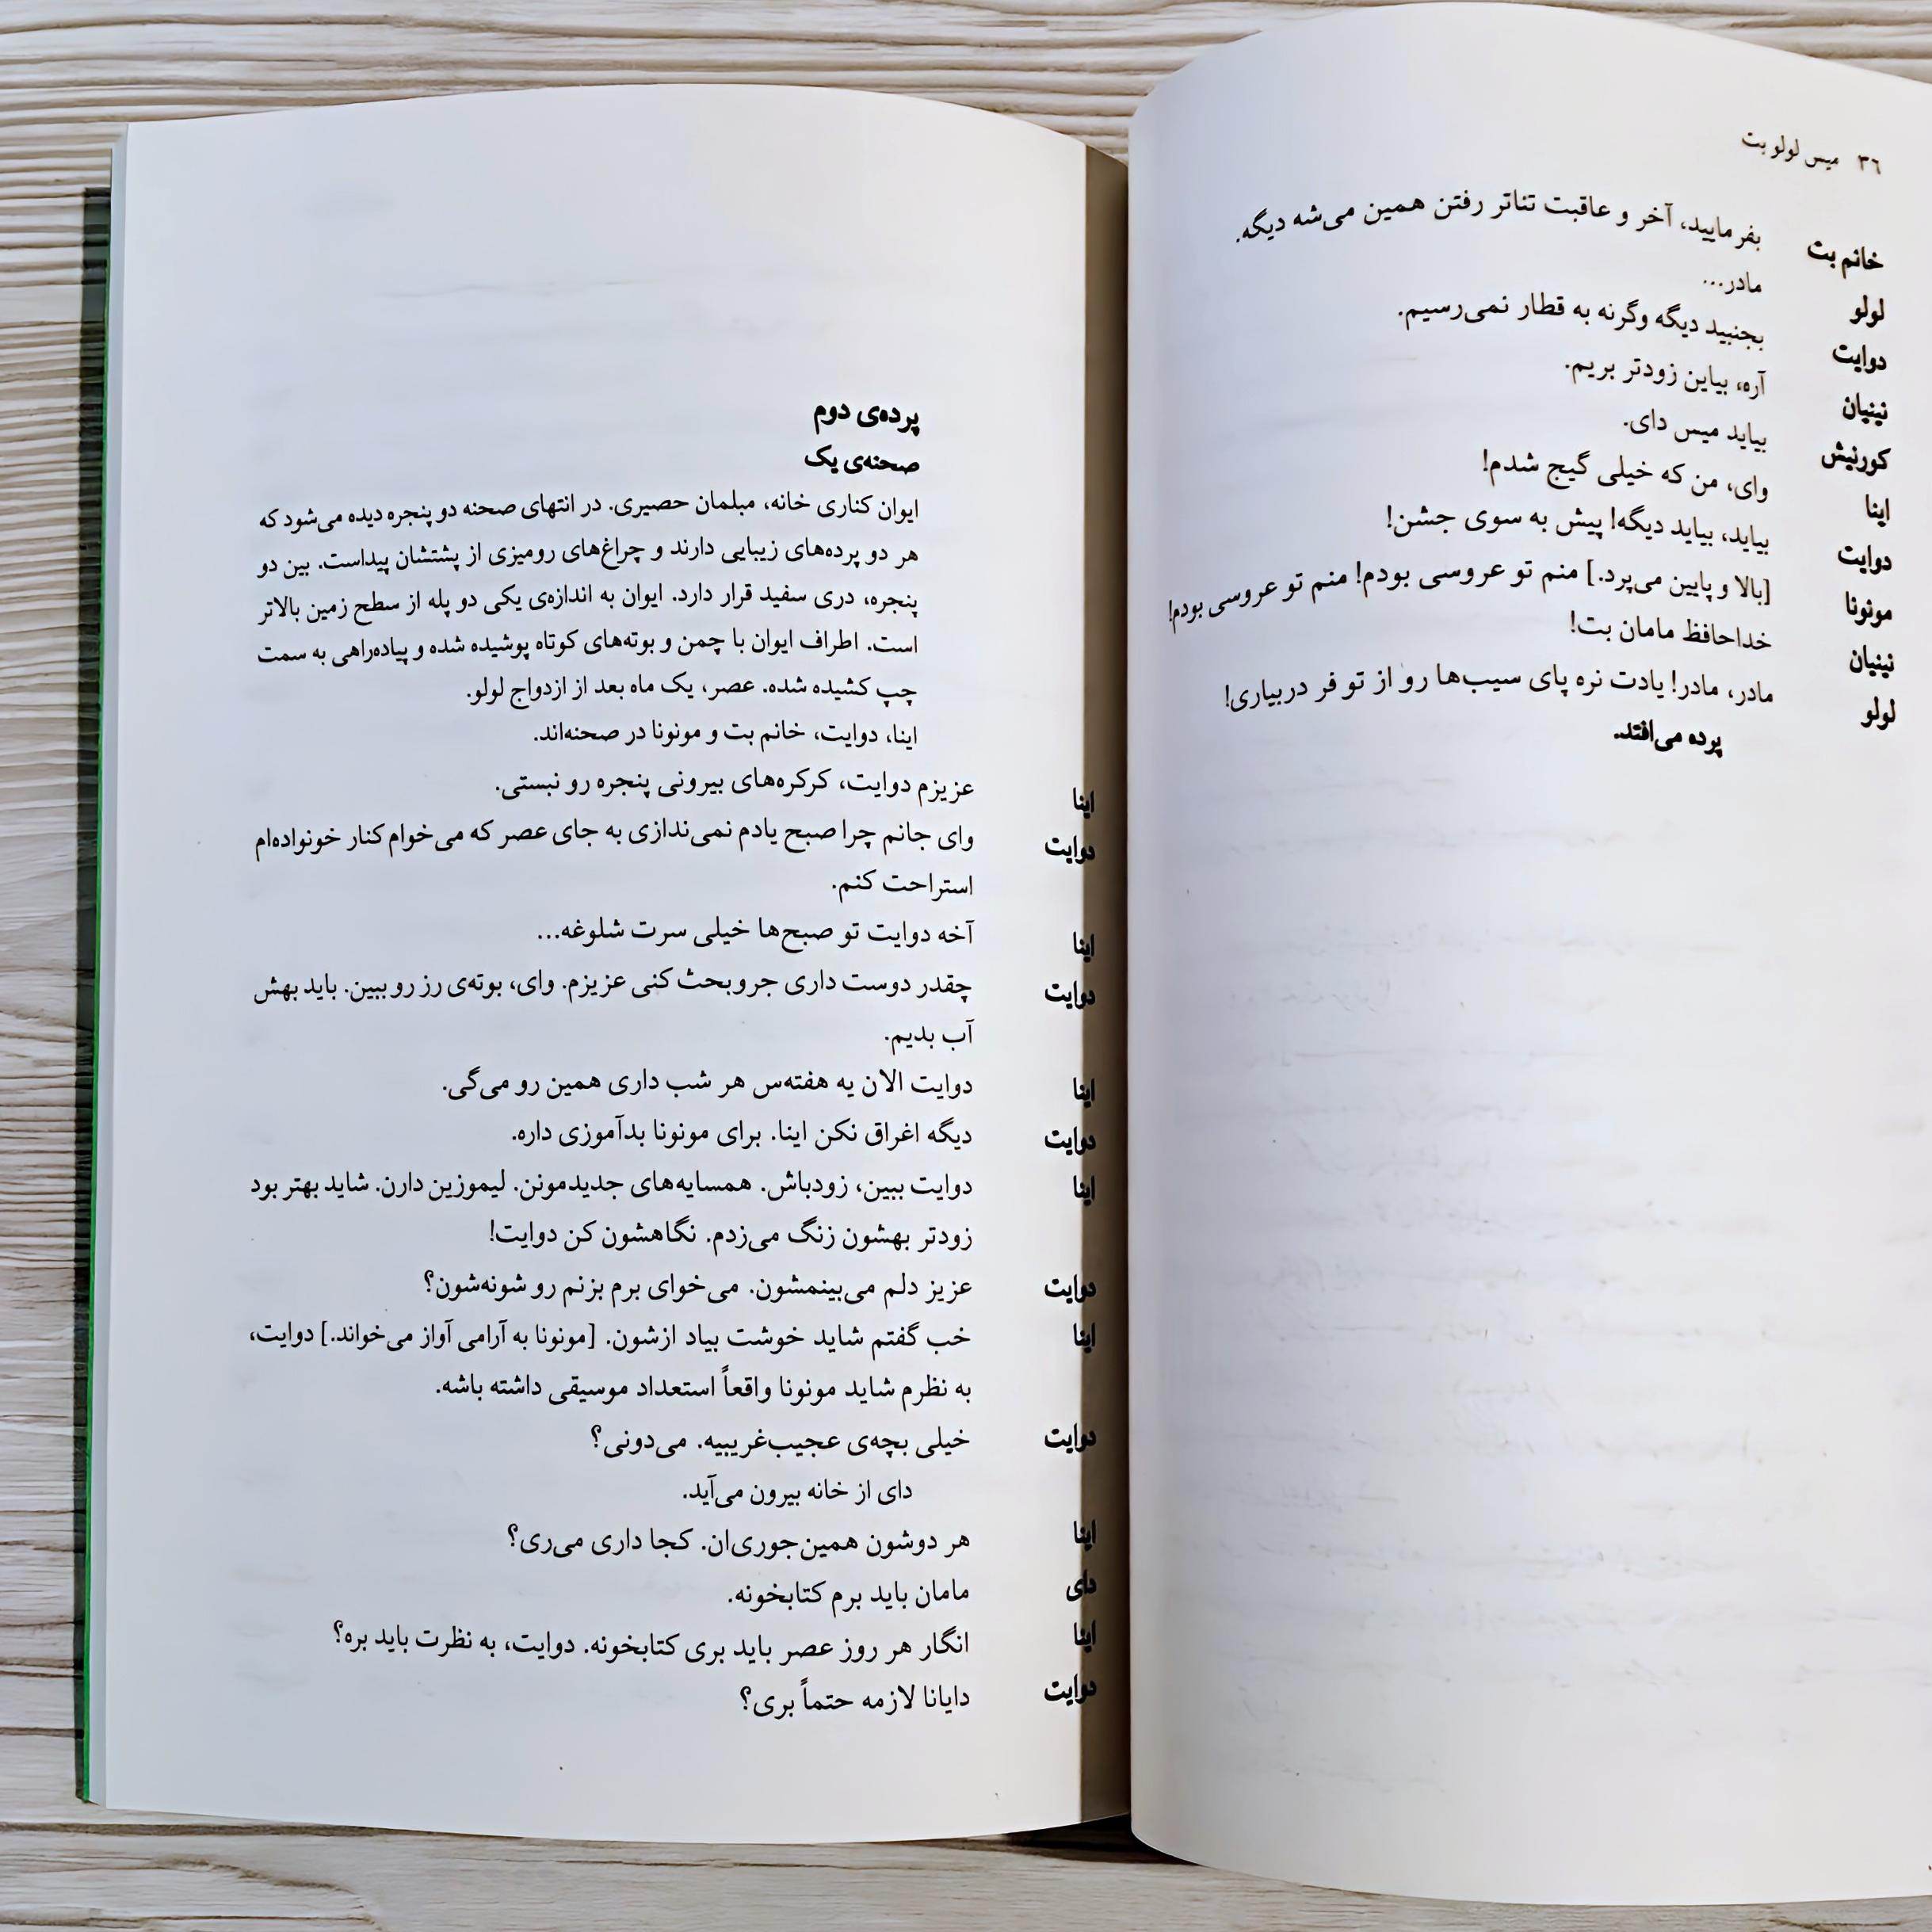 ۳۶ میس لولو بت
خانم بت بفرمایید، آخر و عاقبت تئاتر رفتن همین می‌شه دیگه.
لولو مادر...
دوایت بجنبید دیگه وگرنه به قطار نمی‌رسیم.
نینیان آره، بیاین زودتر بریم.
کورنیش بیاید میس دای.
اینا وای، من که خیلی گیج شدم!
دوایت بیاید، بیاید دیگه! پیش به سوی جشن!
مونونا [بالا و پایین می‌پرد.] منم تو عروسی بودم! منم تو عروسی بودم!
نینیان خداحافظ مامان بت!
لولو مادر، مادر! یادت نره پای سیب‌ها رو از تو فر دربیاری!
پرده می‌افتد.
پرده‌ی دوم
صحنه‌ی یک
ایوان کناری خانه، مبلمان حصیری. در انتهای صحنه دو پنجره دیده می‌شود که
هر دو پرده‌های زیبایی دارند و چراغ‌های رومیزی از پشتشان پیداست. بین دو
پنجره، دری سفید قرار دارد. ایوان به اندازه‌ی یکی دو پله از سطح زمین بالاتر
است. اطراف ایوان با چمن و بوته‌های کوتاه پوشیده شده و پیاده‌راهی به سمت
چپ کشیده شده. عصر، یک ماه بعد از ازدواج لولو.
اینا، دوایت، خانم بت و مونونا در صحنه‌اند.
اینا عزیزم دوایت، کرکره‌های بیرونی پنجره رو نبستی.
دوایت وای جانم چرا صبح یادم نمی‌ندازی به جای عصر که می‌خوام کنار خونواده‌ام
استراحت کنم.
اینا آخه دوایت تو صبح‌ها خیلی سرت شلوغه...
دوایت چقدر دوست داری جروبحث کنی عزیزم. وای، بوته‌ی رز رو ببین. باید بهش
آب بدیم.
اینا دوایت الان یه هفته‌س هر شب داری همین رو می‌گی.
دوایت دیگه اغراق نکن اینا. برای مونونا بدآموزی داره.
اینا دوایت ببین، زودباش. همسایه‌های جدیدمونن. لیموزین دارن. شاید بهتر بود
زودتر بهشون زنگ می‌زدم. نگاهشون کن دوایت!
دوایت عزیز دلم می‌بینمشون. می‌خوای برم بزنم رو شونه‌شون؟
اینا خب گفتم شاید خوشت بیاد ازشون. [مونونا به آرامی آواز می‌خواند.] دوایت،
به نظرم شاید مونونا واقعاً استعداد موسیقی داشته باشه.
دوایت خیلی بچه‌ی عجیب‌غریبیه. می‌دونی؟
دای از خانه بیرون می‌آید.
اینا هر دوشون همین‌جوری‌ان. کجا داری می‌ری؟
دای مامان باید برم کتابخونه.
اینا انگار هر روز عصر باید بری کتابخونه. دوایت، به نظرت باید بره؟
دوایت دایانا لازمه حتماً بری؟